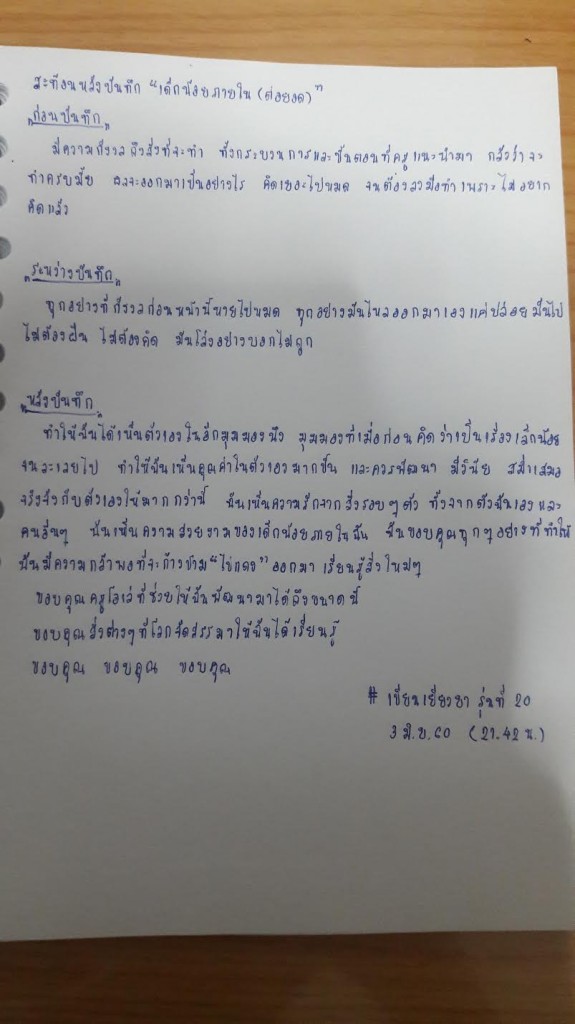 สะท้อนหลังบันทึก "เด็กน้อยภายใน (ต่อยอด)"
"ก่อนบันทึก"
มีความกังวลถึงสิ่งที่จะทำ ทั้งกระบวนการและขั้นตอนที่ครูแนะนำมา กลัวว่าจะ
ทำครบมั้ย ผลจะออกมาเป็นอย่างไร คิดเยอะไปหมด จนต้องลงมือทำเพราะไม่อยาก
คิดแล้ว
"ระหว่างบันทึก"
ทุกอย่างที่กังวลก่อนหน้านี้หายไปหมด ทุกอย่างมันไหลออกมาเองแค่ปล่อยมันไป
ไม่ต้องฝืน ไม่ต้องคิด มันโล่งอย่างบอกไม่ถูก
"หลังบันทึก"
ทำให้ฉันได้เห็นตัวเองในอีกมุมมองนึง มุมมองที่เมื่อก่อนคิดว่าเป็นเรื่องเล็กน้อย
จนละเลยไป ทำให้ฉันเห็นคุณค่าในตัวเองมากขึ้น และควรพัฒนา มีวินัย สม่ำเสมอ
จริงจังกับตัวเองให้มากกว่านี้ ฉันเห็นความรักจากสิ่งรอบๆตัว ทั้งจากตัวฉันเองและ
คนอื่นๆ ฉันเห็นความสวยงามของเด็กน้อยภายในฉัน ฉันขอบคุณทุกๆอย่างที่ทำให้
ฉันมีความกล้าพอที่จะก้าวข้าม "ไข่แดง" ออกมา เรียนรู้สิ่งใหม่ๆ
ขอบคุณครูโอเล่ที่ช่วยให้ฉันพัฒนามาได้ถึงขนาดนี้
ขอบคุณสิ่งต่างๆที่โลกจัดสรรมาให้ฉันได้เรียนรู้
ขอบคุณ ขอบคุณ ขอบคุณ
# เขียนเยียวยา รุ่นที่ 20
3 มิ.ย. 60 (21.42 น.)